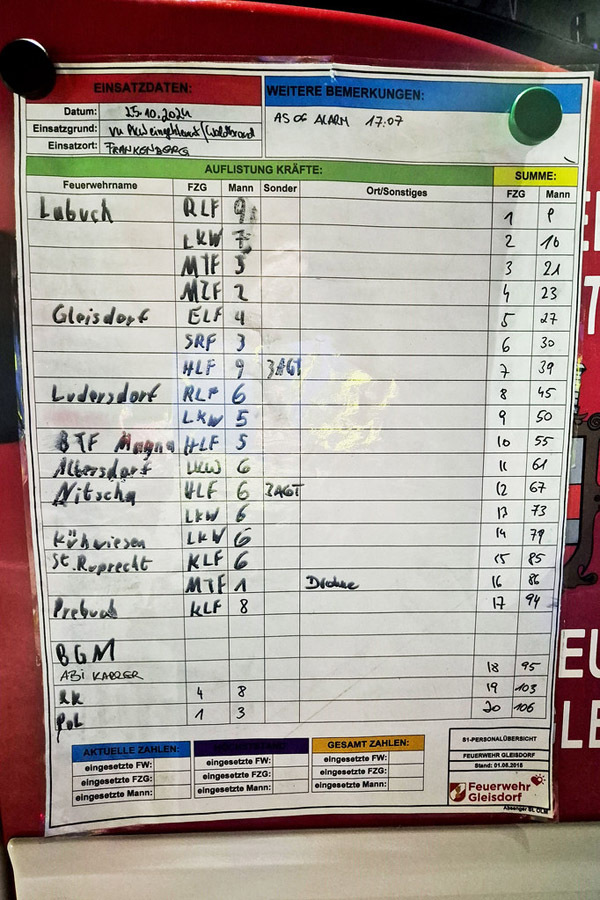 EINSATZDATEN: WEITERE BEMERKUNGEN:
Datum: 25.10.2024 AS 06 ALARM 17:07
Einsatzgrund: VU PKW eingeklemmt/Waldbrand
Einsatzort: FRANKENBERG
AUFLISTUNG KRÄFTE: SUMME:
Feuerwehrname FZG Mann Sonder Ort/Sonstiges FZG Mann
Labuch RLF 9 1
LKW 7 2 16
MTF 5 3 21
MZF 2 4 23
Gleisdorf ELF 4 5 27
SRF 3 6 30
HLF 9 3AGT 7 39
Ludersdorf RLF 6 8 45
LKW 5 9 50
BTF Magna HLF 5 10 55
Albersdorf LKW 6 11 61
Nitscha HLF 6 3AGT 12 67
LKW 6 13 73
Kühwiesen LKW 6 14 79
St. Ruprecht KLF 6 15 85
MTF 1 Drohne 16 86
Prebuch KLF 8 17 94
BGM
ABI KARRER 18 95
RK 4 8 19 103
POL 1 3 20 106
AKTUELLE ZAHLEN: GESAMT ZAHLEN:
eingesetzte FW: eingesetzte FW: eingesetzte FW:
eingesetzte FZG: eingesetzte FZG: eingesetzte FZG:
eingesetzte Mann: eingesetzte Mann: eingesetzte Mann:
S1-PERSONALÜBERSICHT
FEUERWEHR GLEISDORF
Stand: 01.08.2018
Feuerwehr
Gleisdorf